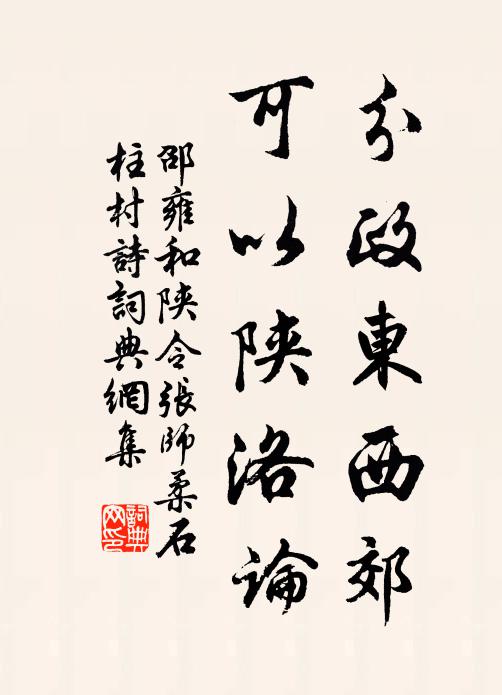 分政東西郊
可以陝洛論
邵雍和陝令張師柔石
柱村詩詞典網集
詞典
网印